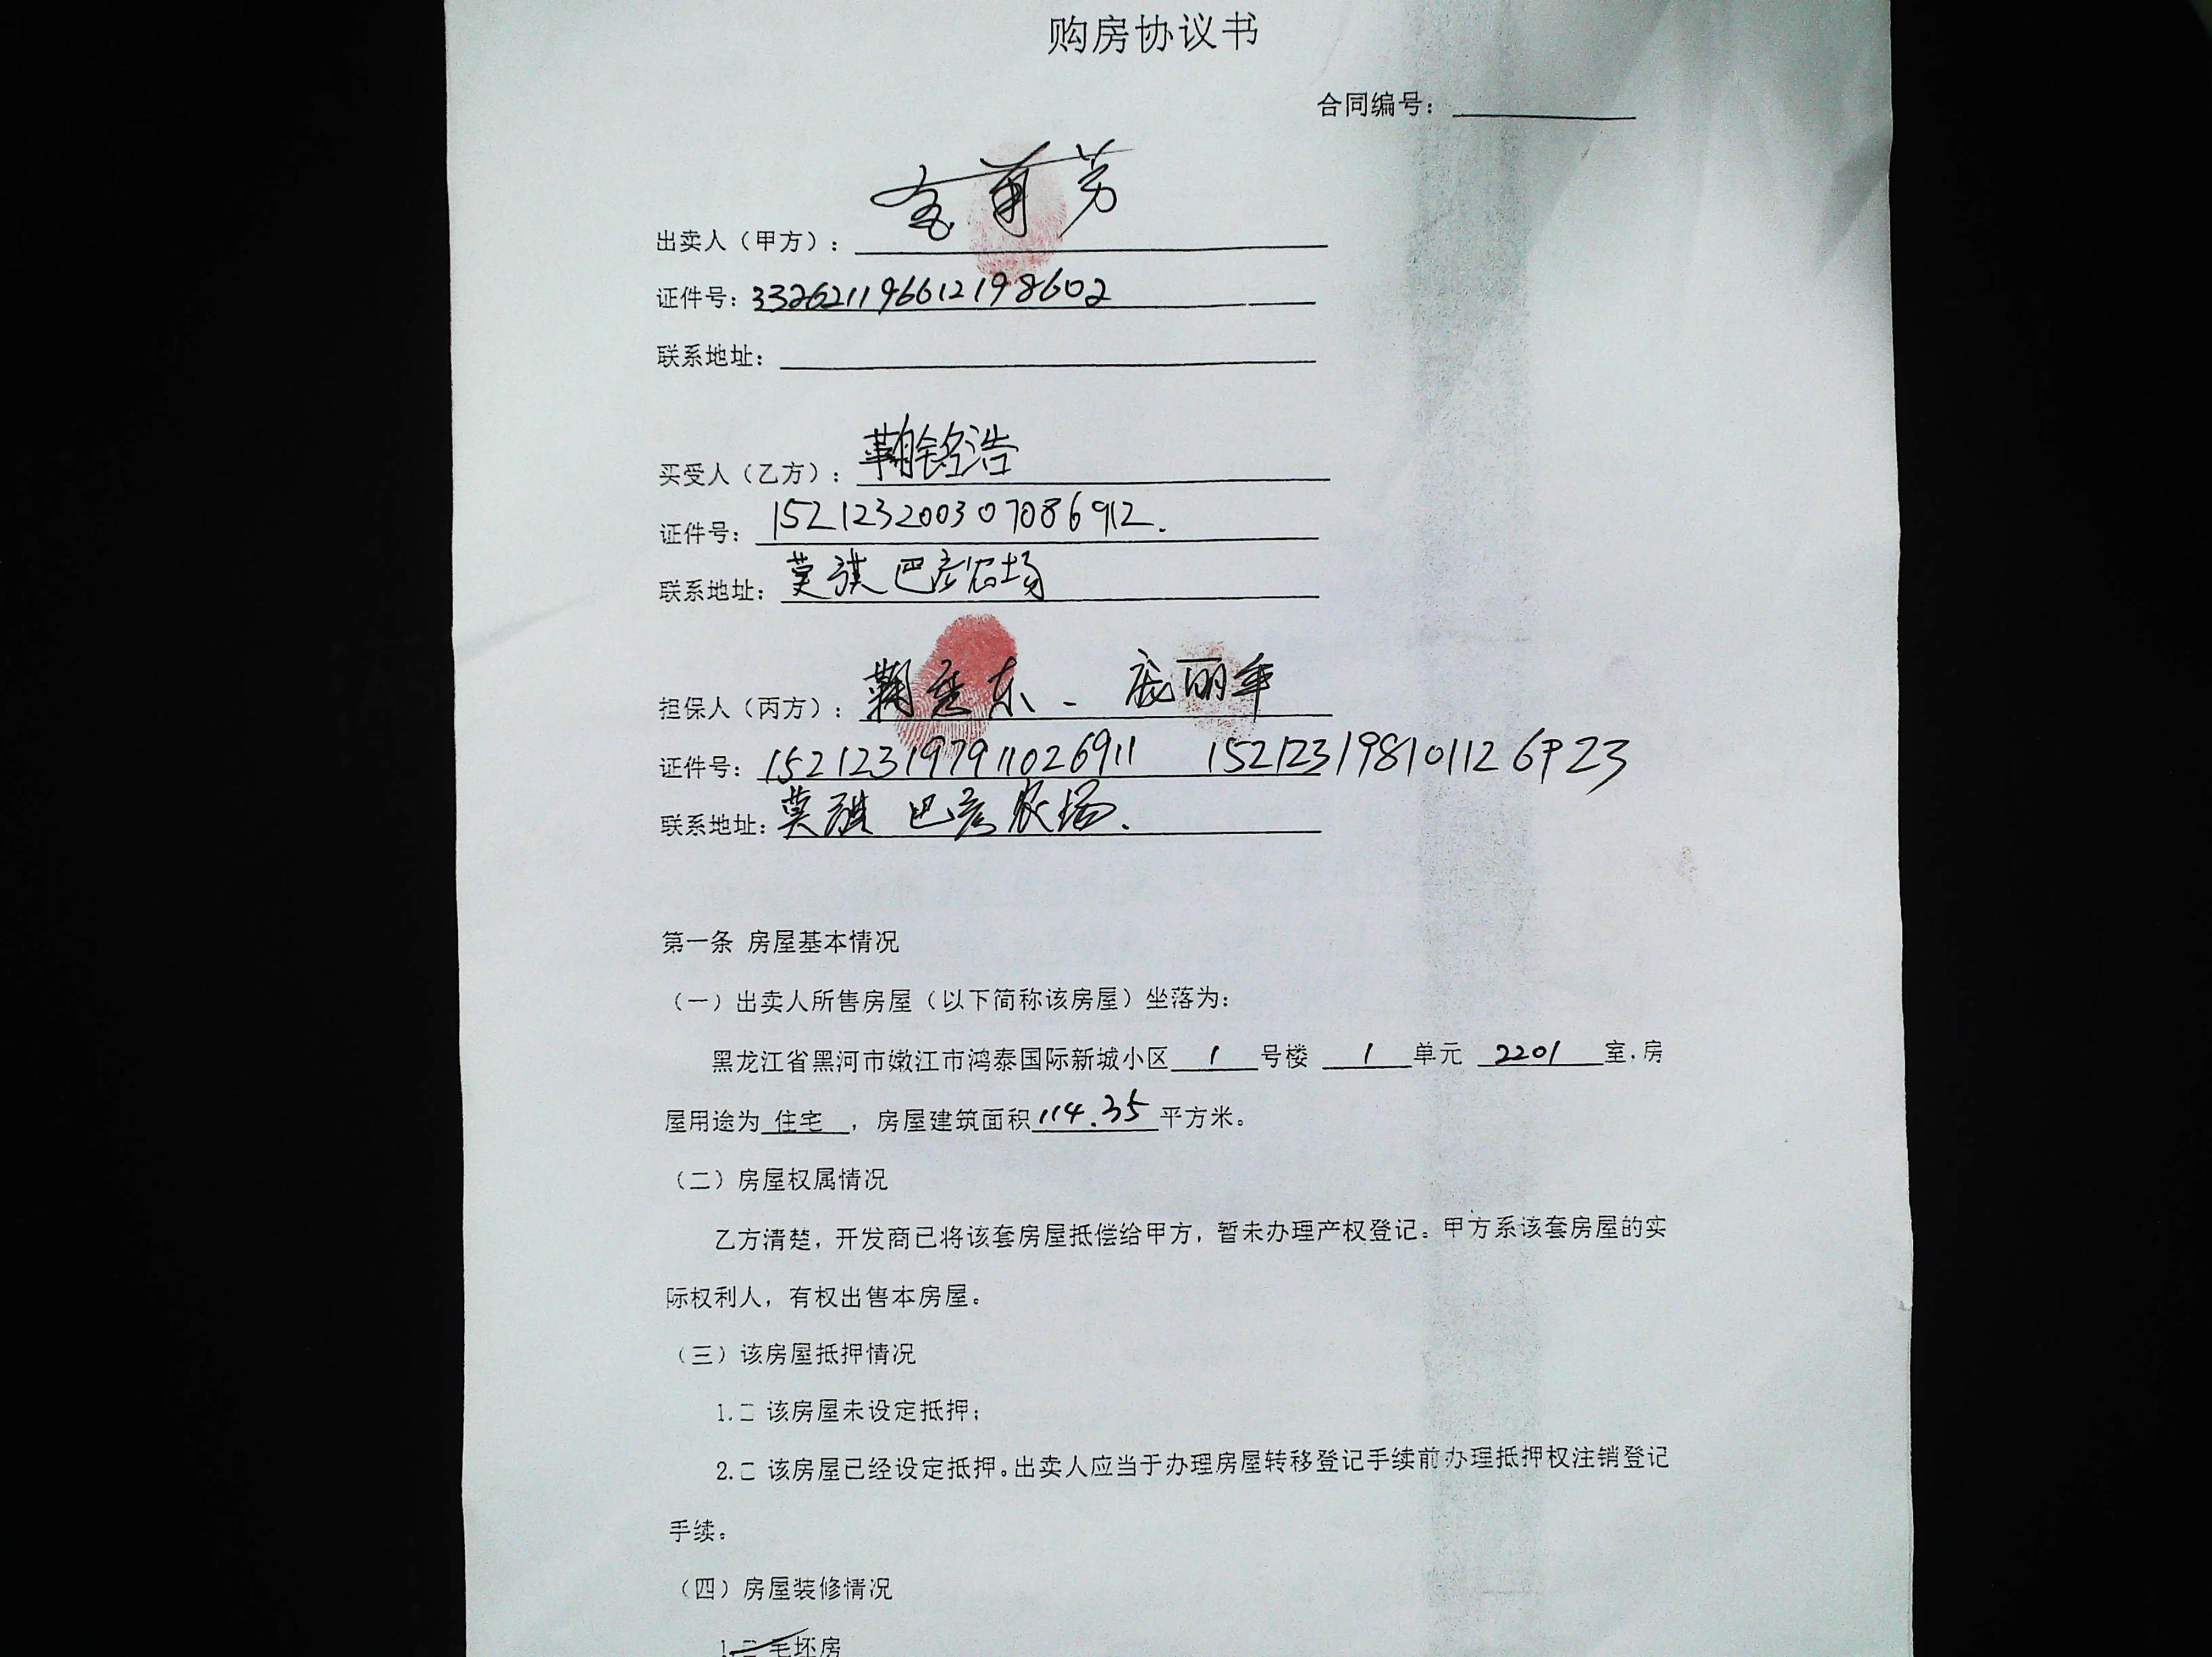 购房协议书
合同编号：
出卖人（甲方）：
证件号：332621196612198602
联系地址：
买受人（乙方）：鞠铭浩
证件号：152123200307086912.
联系地址：莫旗巴彦农场
担保人（丙方）：鞠 东 、 庞丽
证件号：152123197911026911 152123198101126923
联系地址：莫旗 巴彦农场.
第一条 房屋基本情况
（一）出卖人所售房屋（以下简称该房屋）坐落为：
黑龙江省黑河市嫩江市鸿泰国际新城小区 1 号楼 1 单元 2201 室，房
屋用途为 住宅 ，房屋建筑面积 114.35 平方米。
（二）房屋权属情况
乙方清楚，开发商已将该套房屋抵偿给甲方，暂未办理产权登记。甲方系该套房屋的实
际权利人，有权出售本房屋。
（三）该房屋抵押情况
1.□ 该房屋未设定抵押；
2.□ 该房屋已经设定抵押。出卖人应当于办理房屋转移登记手续前办理抵押权注销登记
手续。
（四）房屋装修情况
1.□ 毛坯房